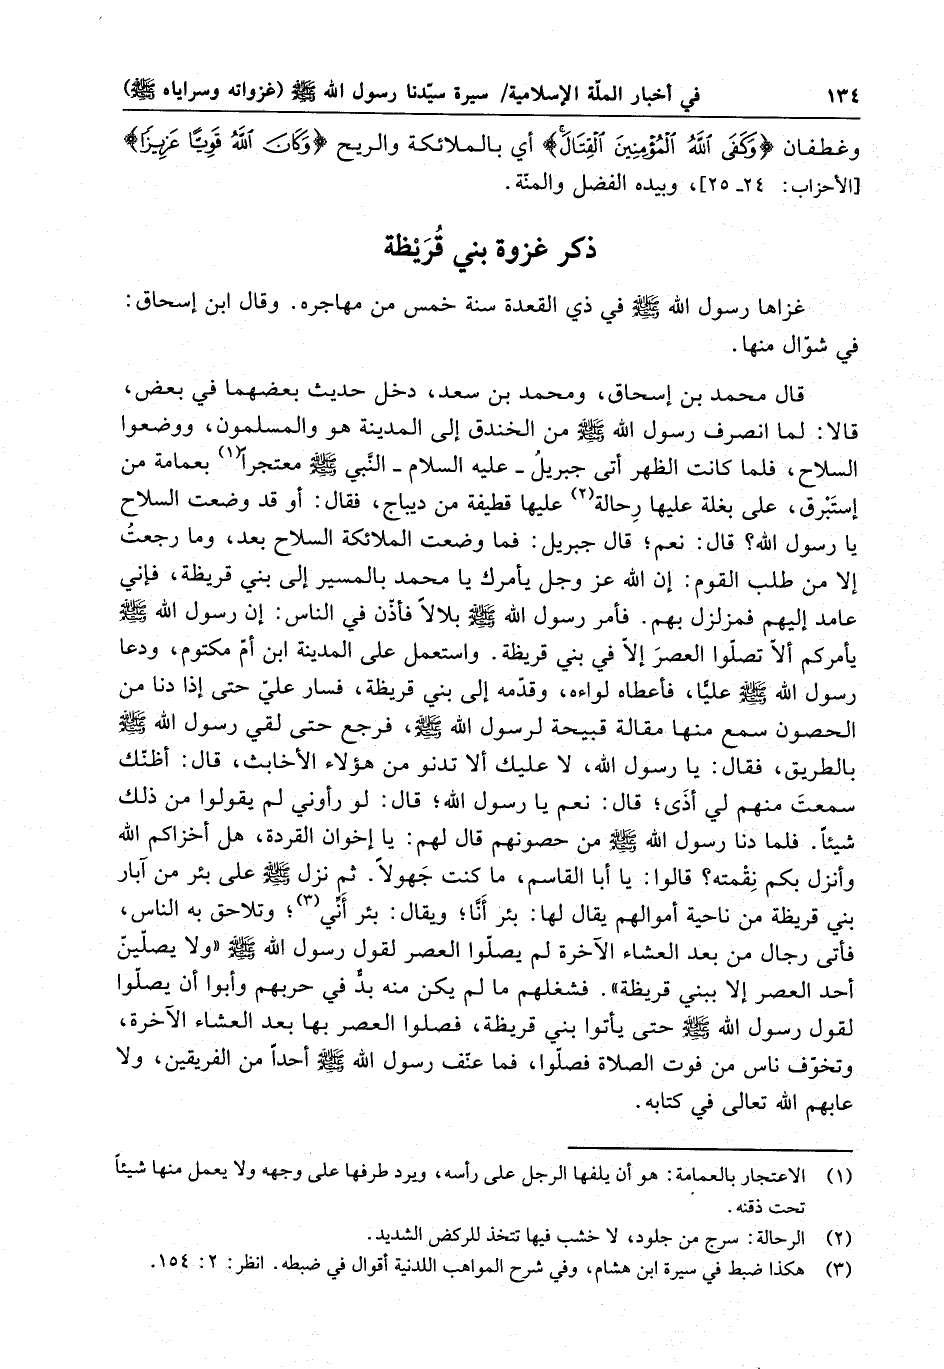 ١٣٤ في أخبار الملّة الإسلامية/ سيرة سيّدنا رسول الله ﷺ (غزواته وسراياه ﷺ)
وغطفان ﴿وَكَفَى ٱللَّهُ ٱلْمُؤْمِنِينَ ٱلْقِتَالَۚ﴾ أي بالملائكة والريح ﴿وَكَانَ ٱللَّهُ قَوِيًّا عَزِيزًا﴾
[الأحزاب: ٢٤ـ ٢٥]، وبيده الفضل والمنّة.
ذكر غزوة بني قُرَيْظة
غزاها رسول الله ﷺ في ذي القعدة سنة خمس من مهاجره. وقال ابن إسحاق:
في شوّال منها.
قال محمد بن إسحاق، ومحمد بن سعد، دخل حديث بعضهما في بعض،
قالا: لما انصرف رسول الله ﷺ من الخندق إلى المدينة هو والمسلمون، ووضعوا
السلاح، فلما كانت الظهر أتى جبريلُ ـ عليه السلام ـ النَّبي ﷺ معتجراً(١) بعمامة من
إستَبْرق، على بغلة عليها رِحالة(٢) عليها قطيفة من ديباج، فقال: أو قد وضعت السلاح
يا رسول الله؟ قال: نعم؛ قال جبريل: فما وضعت الملائكة السلاح بعد، وما رجعتُ
إلا من طلب القوم: إن الله عز وجل يأمرك يا محمد بالمسير إلى بني قريظة، فإني
عامد إليهم فمزلزل بهم. فأمر رسول الله ﷺ بلالاً فأذّن في الناس: إن رسول الله ﷺ
يأمركم ألاّ تصلّوا العصرَ إلاّ في بني قريظة. واستعمل على المدينة ابن أمّ مكتوم، ودعا
رسول الله ﷺ عليًّا، فأعطاه لواءه، وقدّمه إلى بني قريظة، فسار عليّ حتى إذا دنا من
الحصون سمع منها مقالة قبيحة لرسول الله ﷺ، فرجع حتى لقي رسول الله ﷺ
بالطريق، فقال: يا رسول الله، لا عليك ألا تدنو من هؤلاء الأخابث، قال: أظنّك
سمعتَ منهم لي أذَى؛ قال: نعم يا رسول الله؛ قال: لو رأوني لم يقولوا من ذلك
شيئاً. فلما دنا رسول الله ﷺ من حصونهم قال لهم: يا إخوان القردة، هل أخزاكم الله
وأنزل بكم نِقْمته؟ قالوا: يا أبا القاسم، ما كنت جَهولاً. ثم نزل ﷺ على بئر من آبار
بني قريظة من ناحية أموالهم يقال لها: بئر أَنَّا؛ ويقال: بئر أَنِّي(٣)؛ وتلاحق به الناس،
فأتى رجال من بعد العشاء الآخرة لم يصلّوا العصر لقول رسول الله ﷺ «ولا يصلّينّ
أحد العصر إلا ببني قريظة». فشغلهم ما لم يكن منه بدٌّ في حربهم وأبوا أن يصلّوا
لقول رسول الله ﷺ حتى يأتوا بني قريظة، فصلوا العصر بها بعد العشاء الآخرة،
وتخوّف ناس من فوت الصلاة فصلّوا، فما عنّف رسول الله ﷺ أحداً من الفريقين، ولا
عابهم الله تعالى في كتابه.
(١) الاعتجار بالعمامة: هو أن يلفها الرجل على رأسه، ويرد طرفها على وجهه ولا يعمل منها شيئاً
تحت ذقنه.
(٢) الرحالة: سرج من جلود، لا خشب فيها تتخذ للركض الشديد.
(٣) هكذا ضبط في سيرة ابن هشام، وفي شرح المواهب اللدنية أقوال في ضبطه. انظر: ٢: ١٥٤.